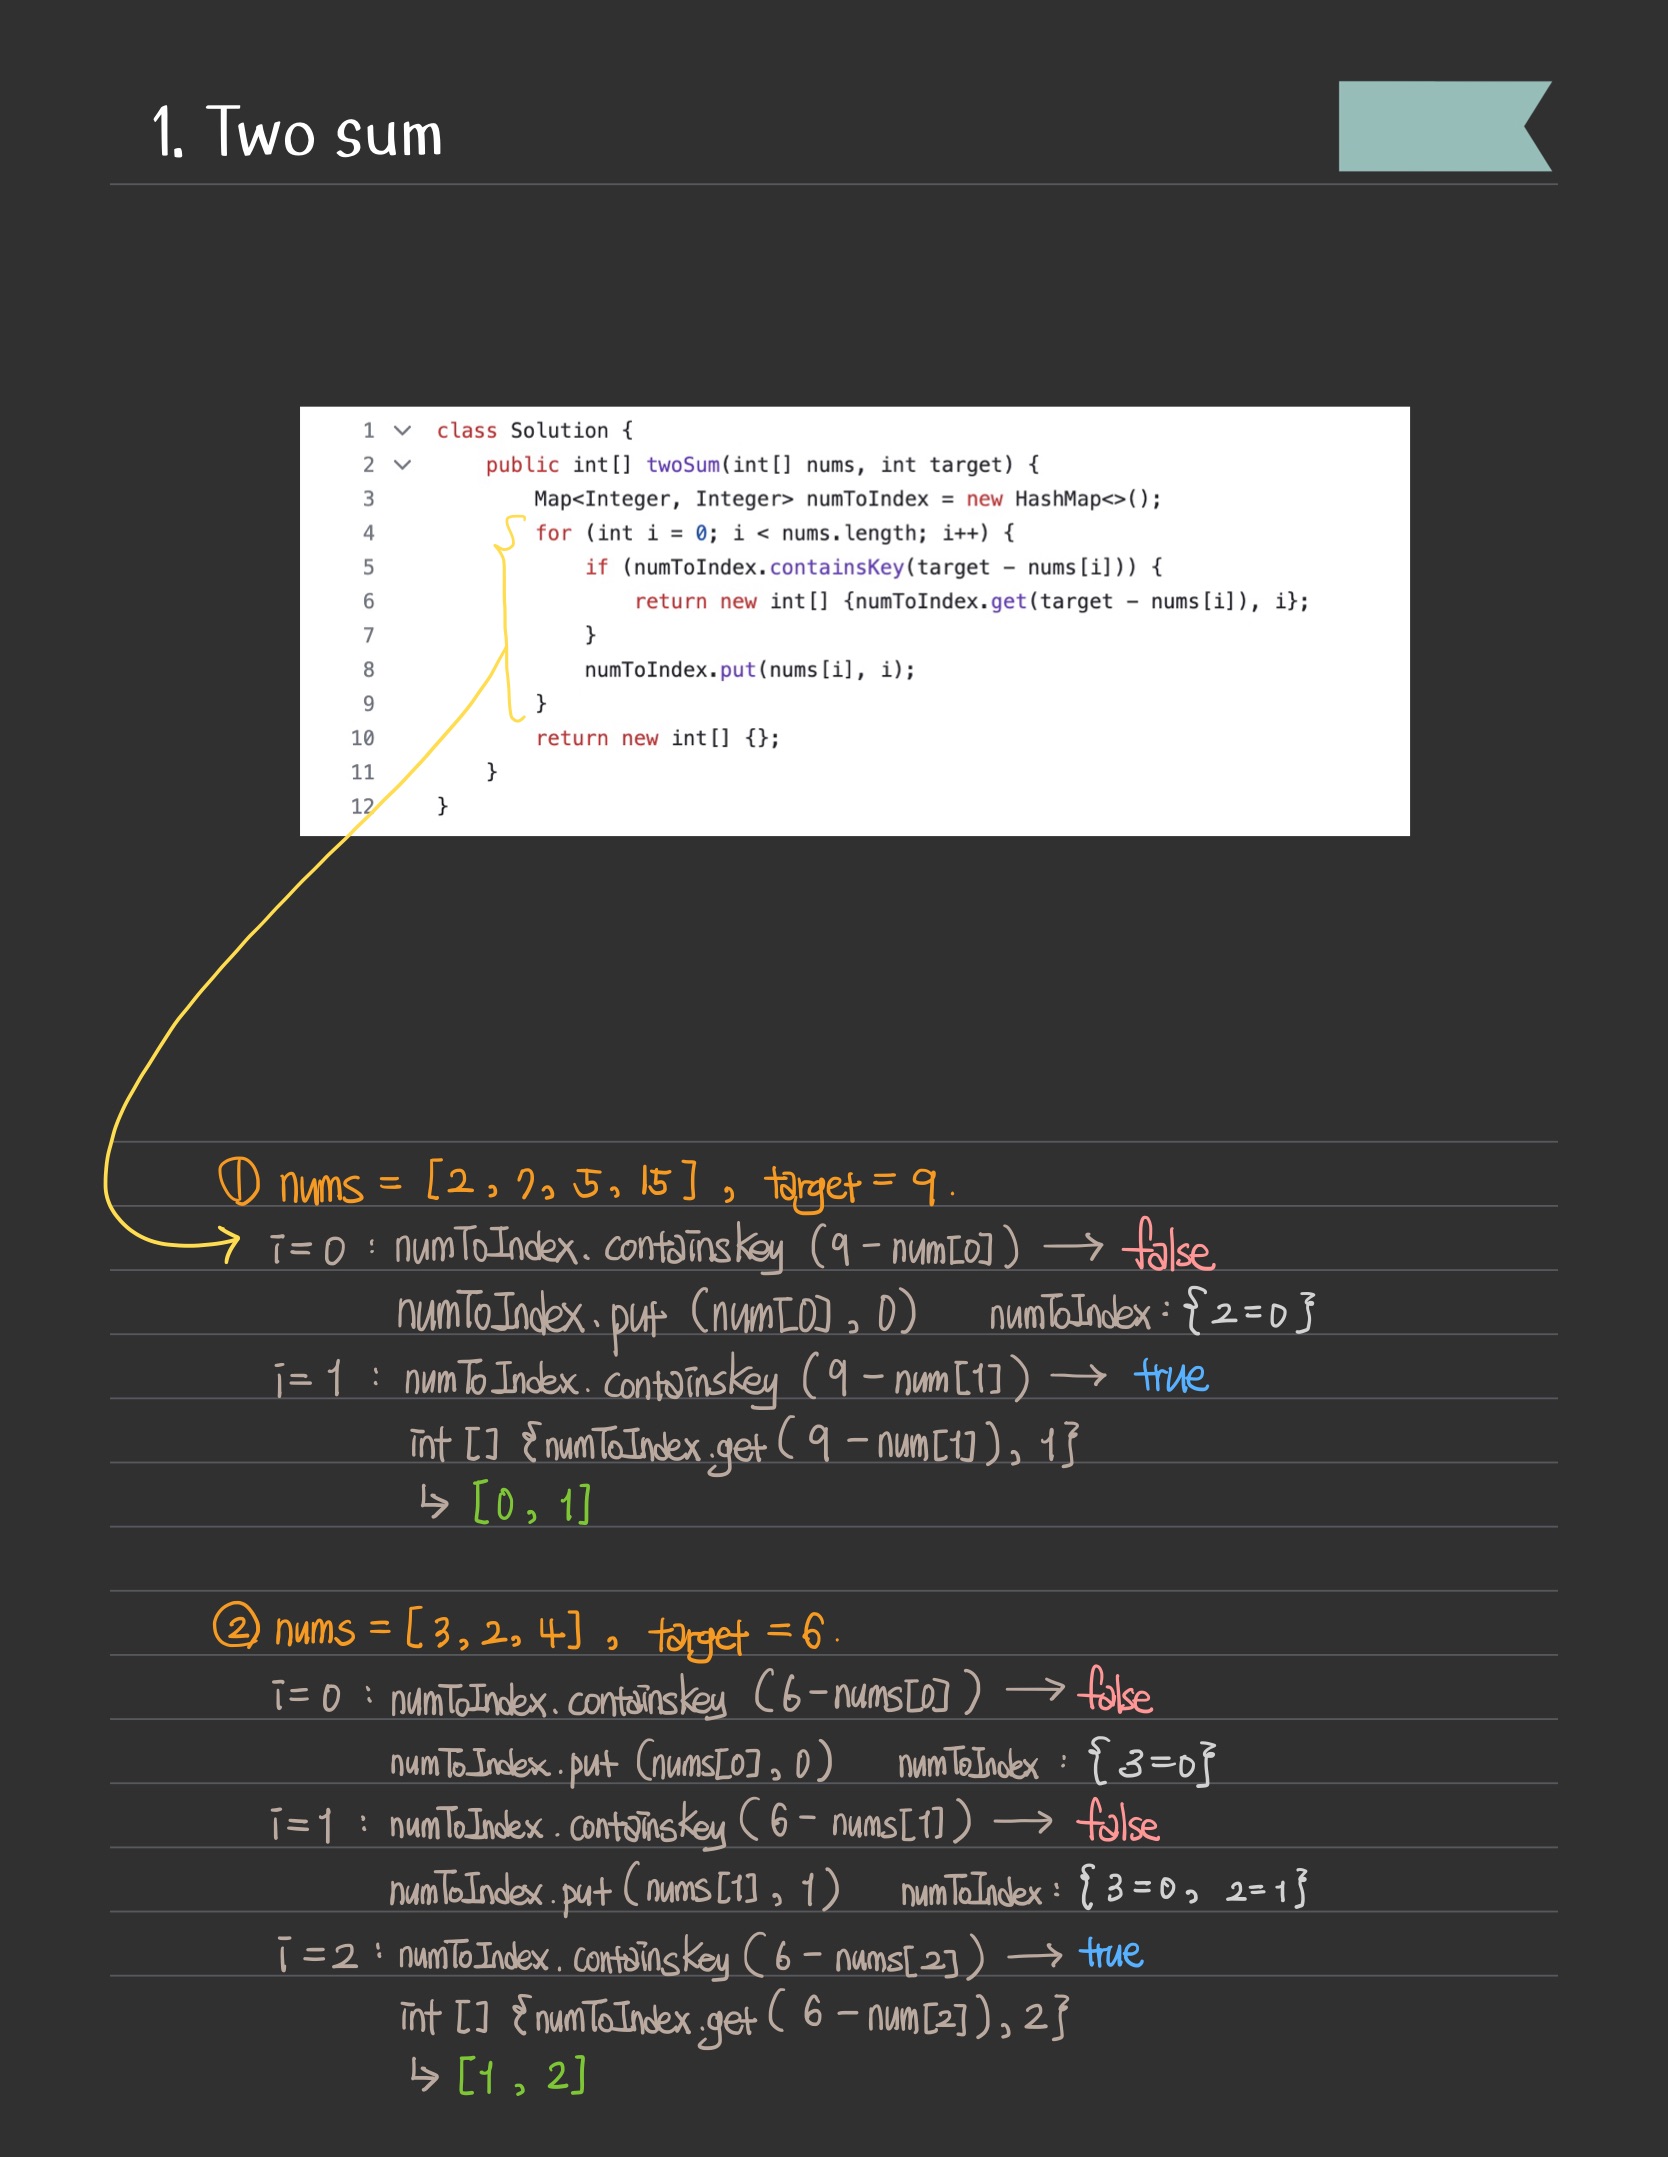 1. Two sum
1 class Solution {
2 public int[] twoSum(int[] nums, int target) {
3 Map<Integer, Integer> numToIndex = new HashMap<>();
4 for (int i = 0; i < nums.length; i++) {
5 if (numToIndex.containsKey(target - nums[i])) {
6 return new int[] {numToIndex.get(target - nums[i]), i};
7 }
8 numToIndex.put(nums[i], i);
9 }
10 return new int[] {};
11 }
12 }
① nums = [2, 7, 5, 15], target = 9.
i=0 : numToIndex.containsKey (9-num[0]) → false
numToIndex.put (num[0], 0) numToIndex : {2=0}
i=1 : numToIndex.containsKey (9-num[1]) → true
int [] {numToIndex.get(9-num[1]), 1}
↳ [0, 1]
② nums = [3, 2, 4], target = 6.
i=0 : numToIndex.containsKey (6-nums[0]) → false
numToIndex.put (nums[0], 0) numToIndex : {3=0}
i=1 : numToIndex.containsKey (6-nums[1]) → false
numToIndex.put (nums[1], 1) numToIndex : {3=0, 2=1}
i=2 : numToIndex.containsKey (6-nums[2]) → true
int [] {numToIndex.get(6-num[2]), 2}
↳ [1, 2]